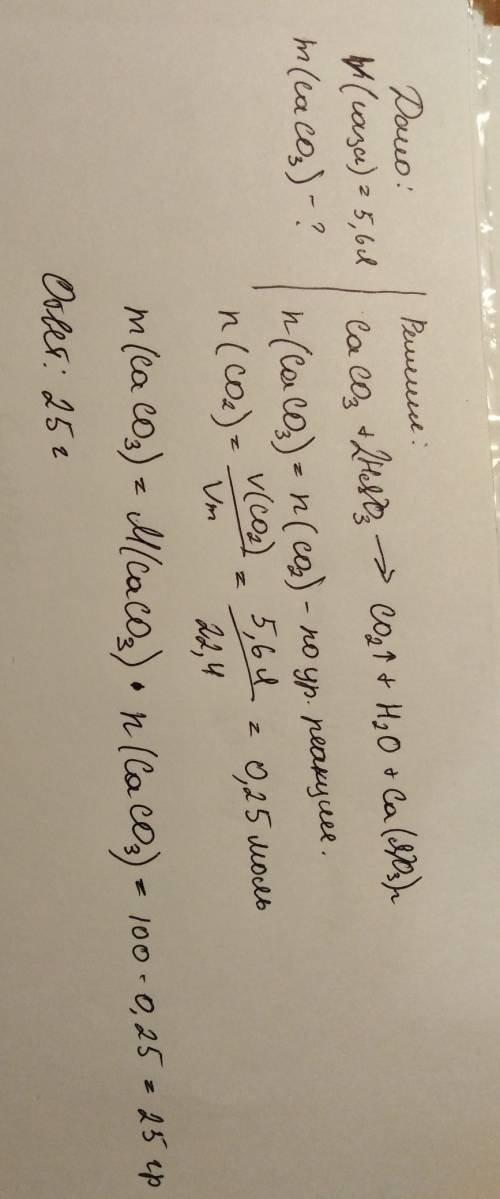 Дано:
V(газа) = 5,6л
m(CaCO₃) - ?
Решение:
CaCO₃ + 2HNO₃ → CO₂↑ + H₂O + Ca(NO₃)₂
n(CaCO₃) = n(CO₂) - по ур. реакции.
n(CO₂) = V(CO₂)/Vm = 5,6л/22,4 = 0,25 моль
m(CaCO₃) = M(CaCO₃) · n(CaCO₃) = 100 · 0,25 = 25 гр
Ответ: 25 г